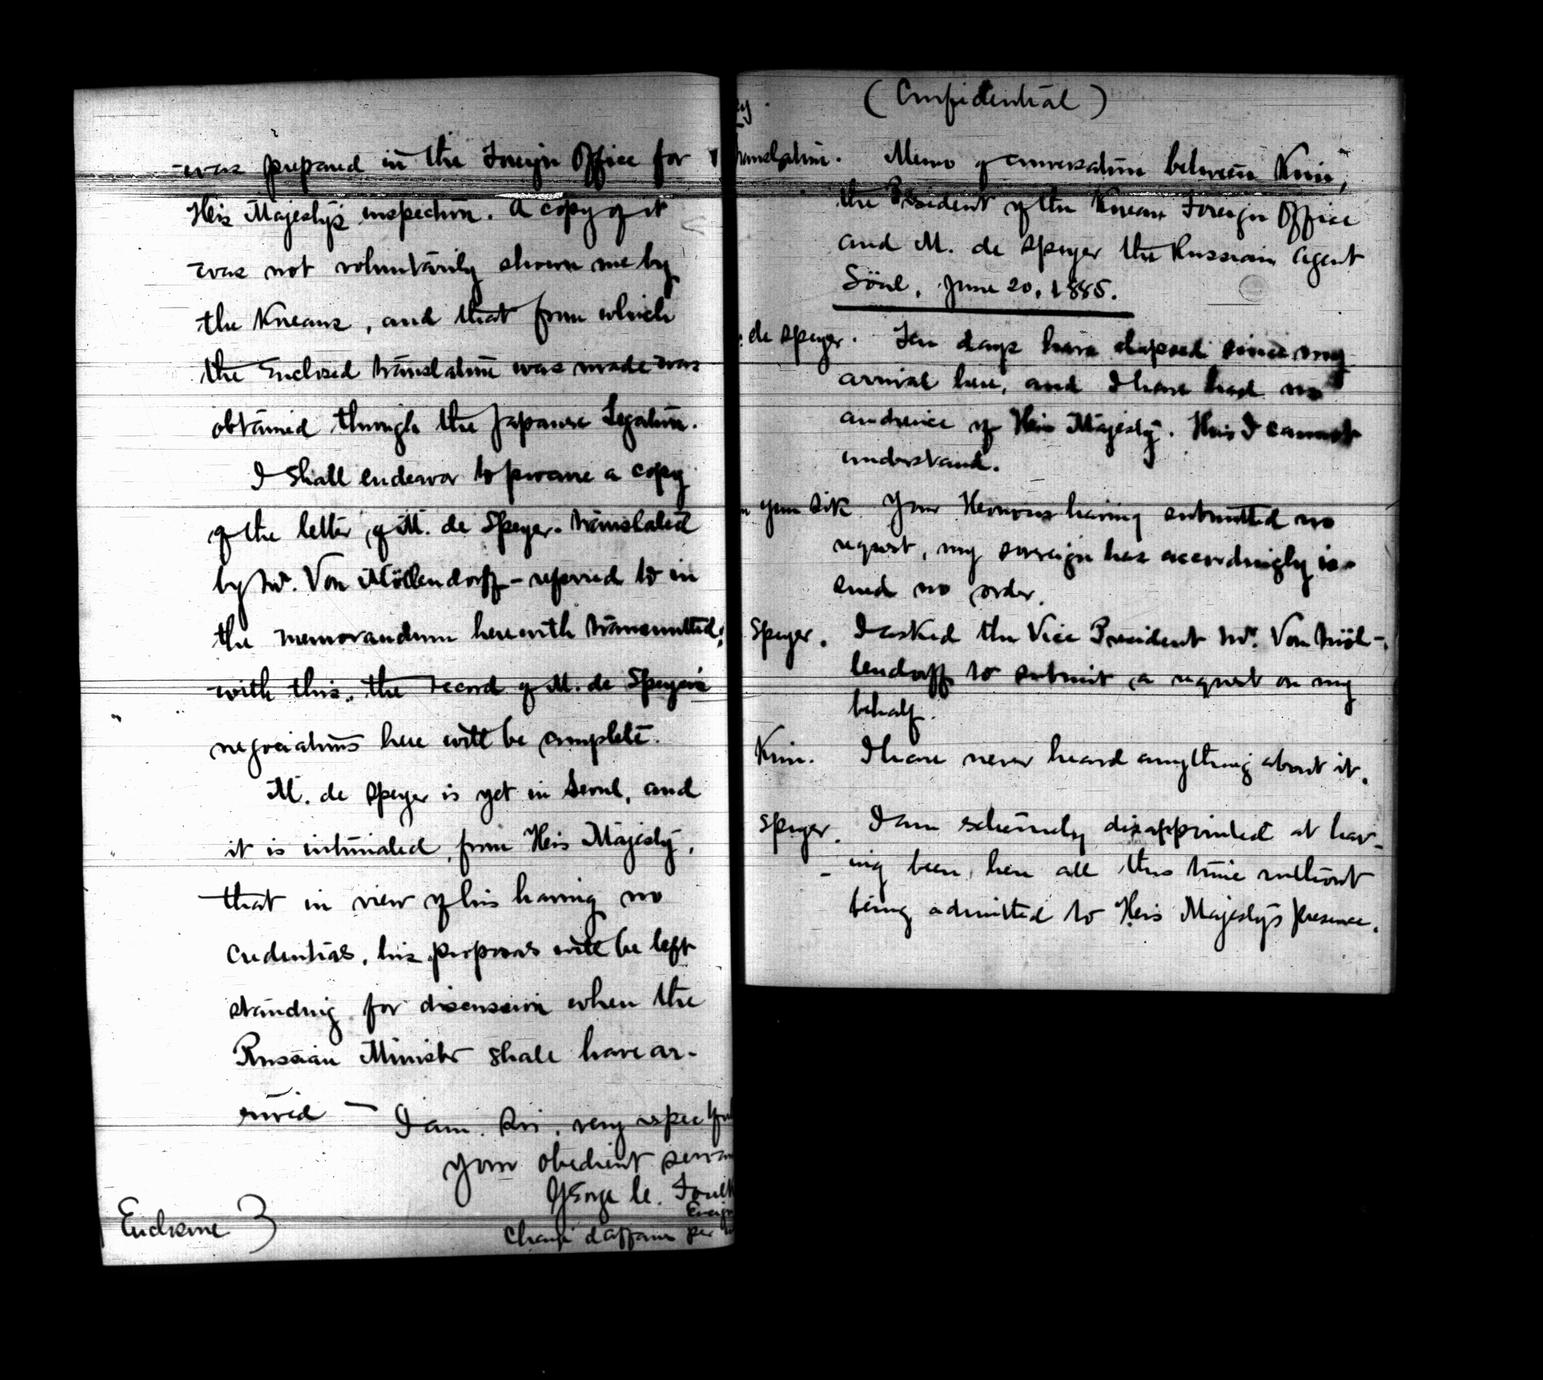 was prepared in the Foreign Office for
His Majesty's inspection. A copy of it
was not voluntarily shown me by
the Koreans, and that from which
the enclosed translation was made was
obtained through the Japanese Legation.
I shall endeavor to procure a copy
of the letter of M. de Speyer - translated
by Mr. Von Möllendorff - referred to in
the memorandum herewith transmitted;
with this, the record of M. de Speyer's
negociations here will be complete.
M. de Speyer is yet in Seoul, and
it is intimated, from His Majesty,
that in view of his having no
credentials, his proposals will be left
standing for discussion when the
Russian Minister shall have ar-
rived — I am, Sir, very respectful
your obedient servan
George C. Foulk
Ensign
Chargé d'affaires per
Enclosure 3
(Confidential)
Translation. Memo of conversation between Kim,
the President of the Korean Foreign Office
and M. de Speyer the Russian Agent
Söul, June 20, 1885.
de Speyer. Ten days have elapsed since my
arrival here, and I have had no
audience of His Majesty. This I cannot
understand.
yun sik Your Honour having submitted no
request, my sovereign has accordingly is-
sued no order.
Speyer. I asked the Vice President Mr. Von Möl-
lendorff to submit a request on my
behalf.
Kim. I have never heard anything about it.
Speyer. I am extremely disappointed at hav-
ing been here all this time without
being admitted to His Majesty's presence.